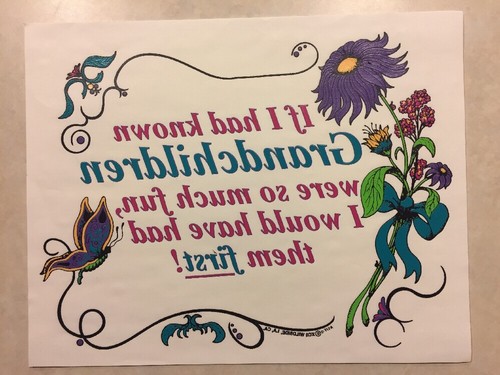 If I had known
Grandchildren
were so much fun,
I would have had
them first!